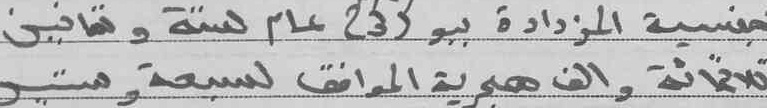 جنسية المزدادة ببو (3) عام ستة وثمانين
ثلاثمائة والف هجرية الموافق لسبعة وستين